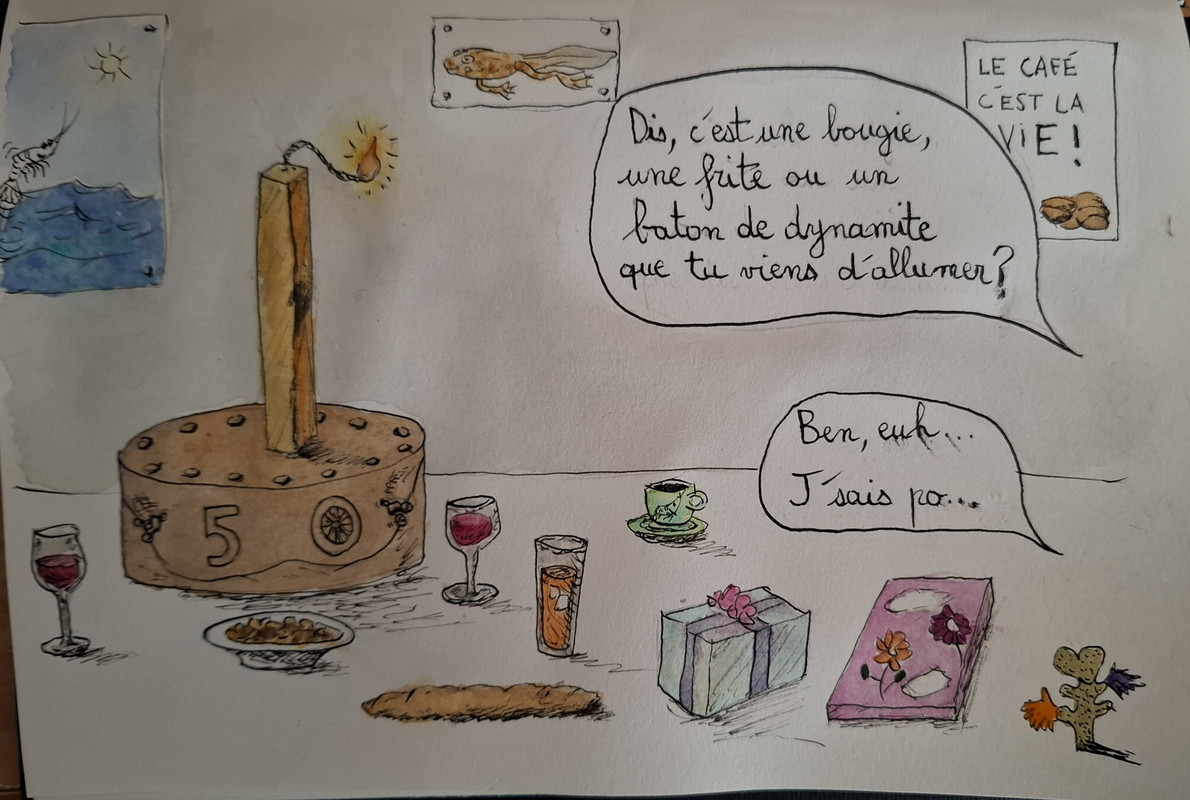 LE CAFÉ
C'EST LA
VIE!
Dis, c'est une bougie,
une frite ou un
baton de dynamite
que tu viens d'allumer?
Ben, euh...
J'sais pa...
5